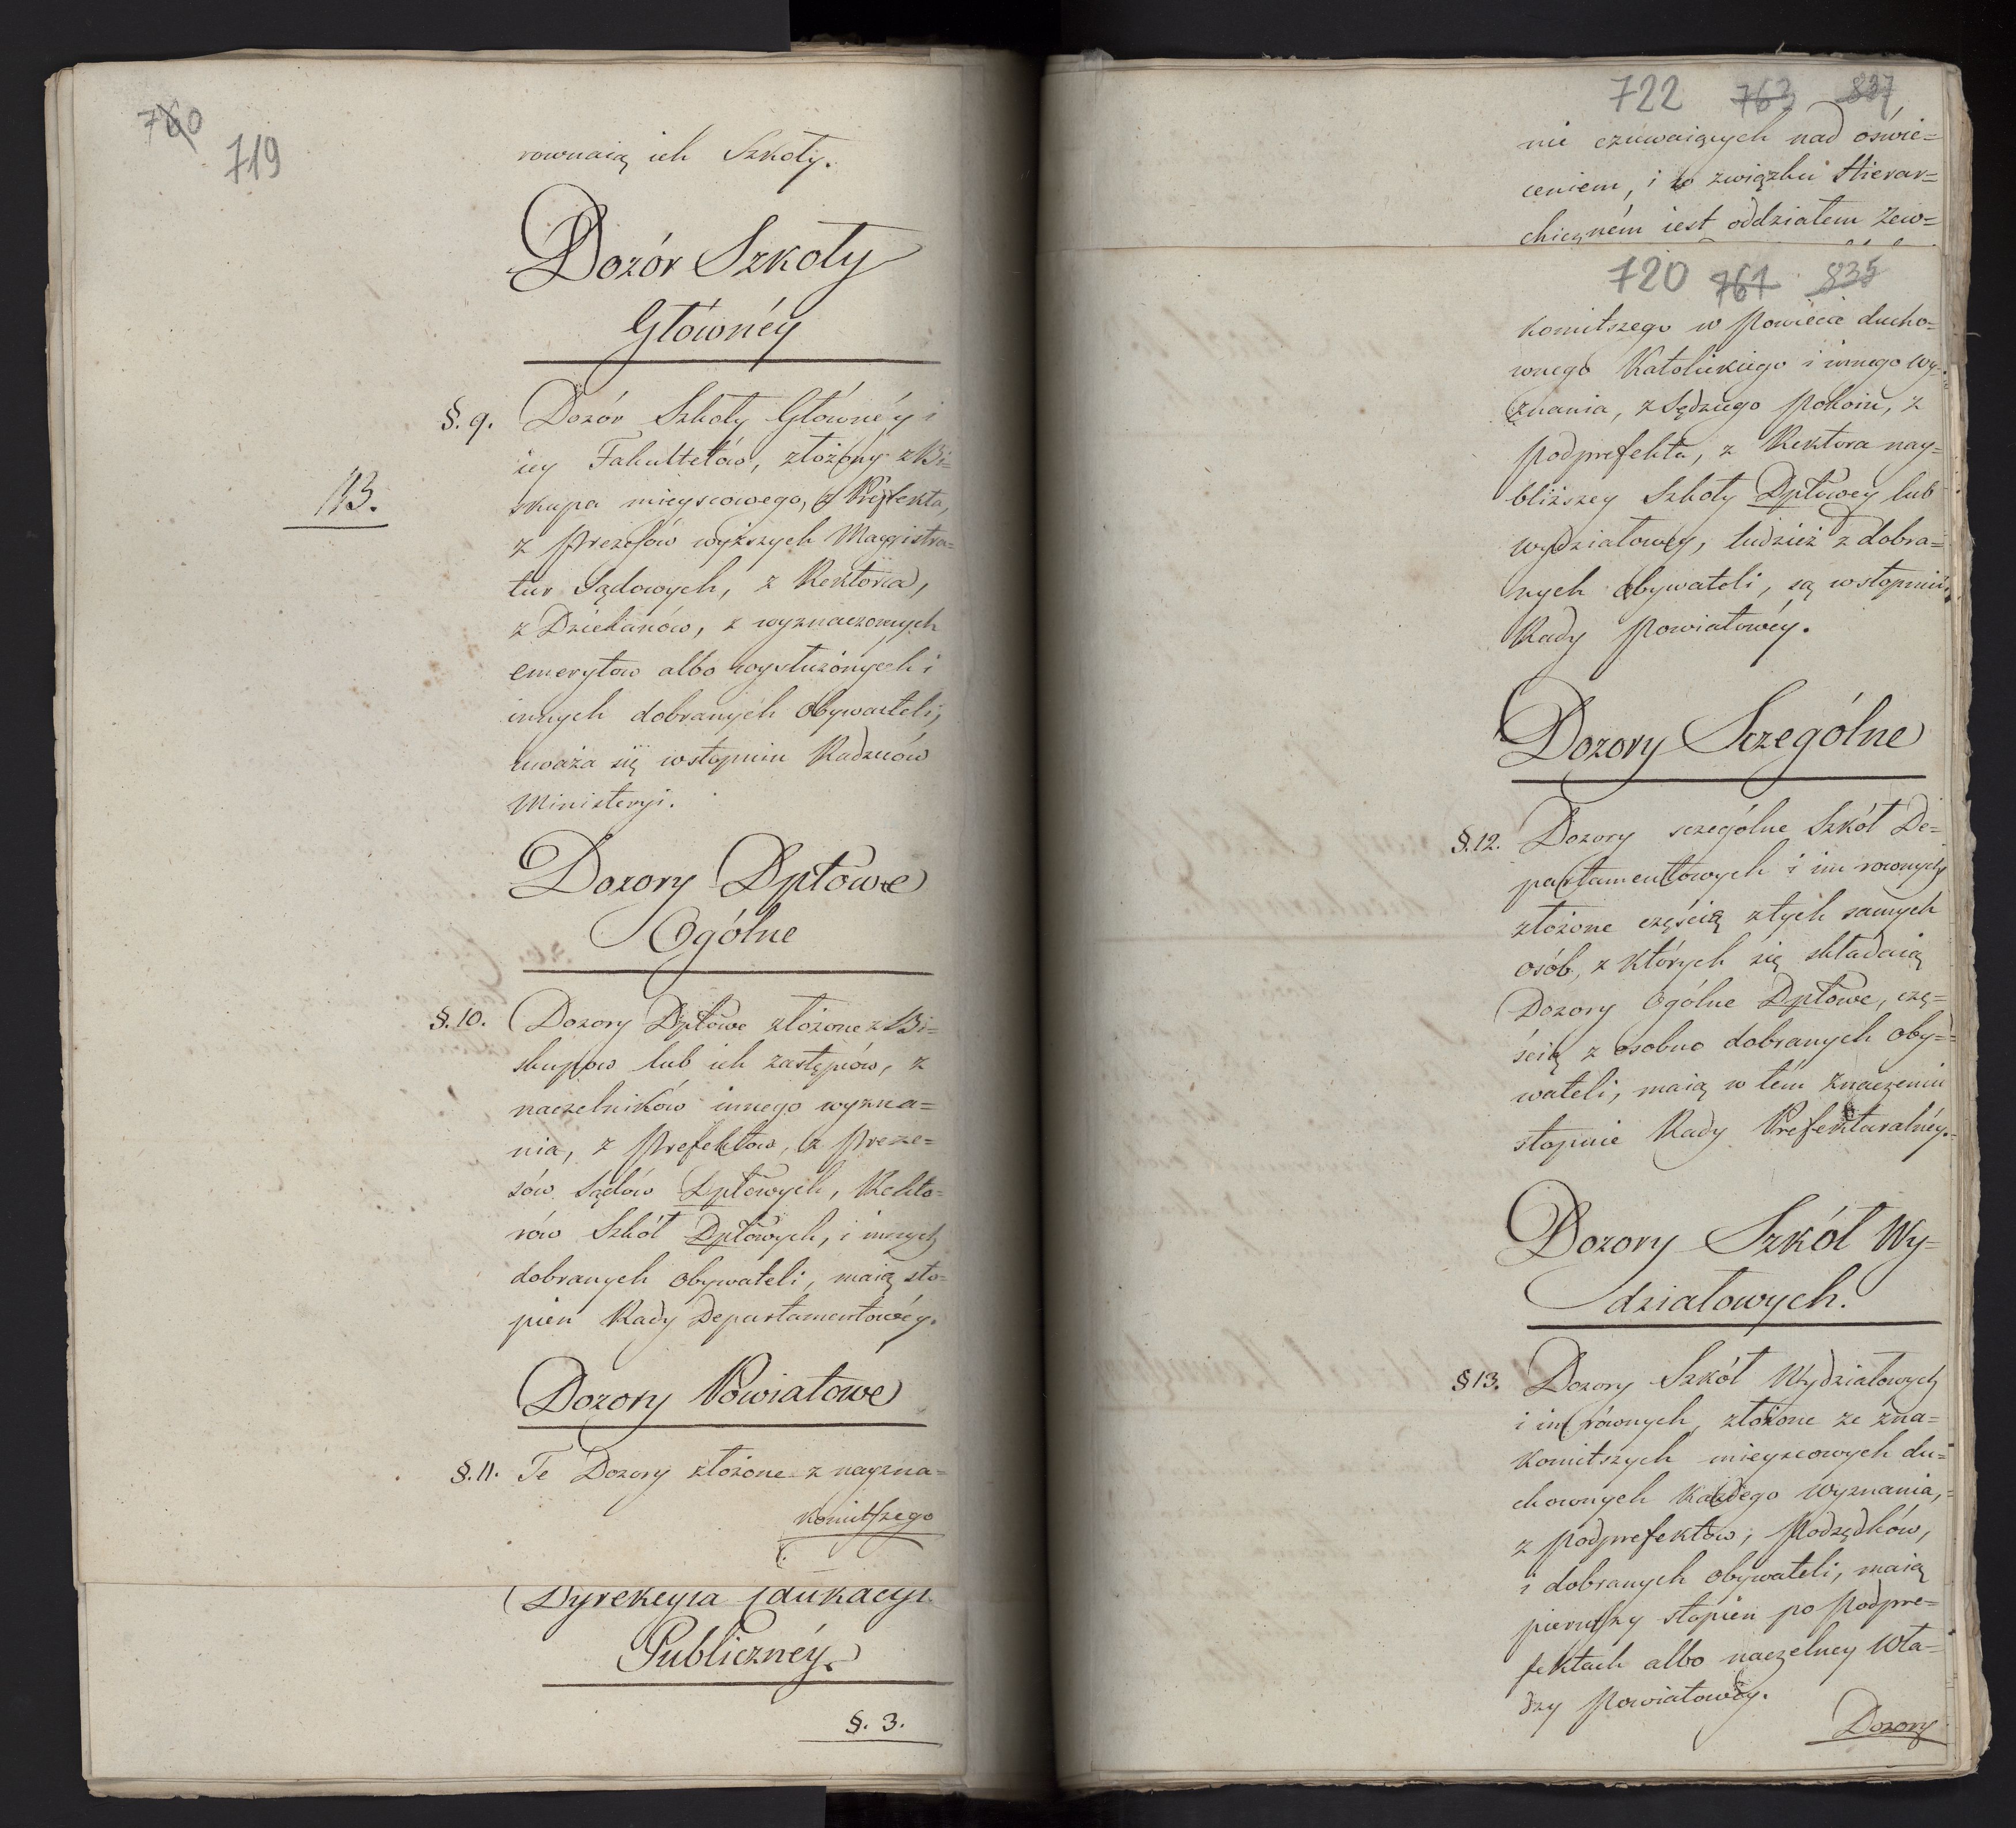 760
719
rownaią ich Szkoły.
Dozór Szkoły
Głównéy
§. 9. Dozór Szkoły Głównéy i
iey Fakultetów, złożony z Bi=
skupa mieyscowego, z Prefekta,
z Prezesów wyższych Maggistra=
tur Sądowych, z Rektora,
z Dziekanów, z wyznaczonych
emerytow albo wysłużonych i
innych dobranych Obywateli,
uważa się wstopniu Radzców
Ministeryi.
113.
Dozory Dptowe
Ogólne
§. 10. Dozory Dptowe złożone z Bi=
skupow lub ich zastępców, z
naczelników innego wyzna=
nia, z Prefektow, z Preze=
sów Sądow Dptowych, Rekto=
rów Szkół Dptowych, i innych
dobranych obywateli, maią sto=
pien Rady Departamentowéy.
Dozory Powiatowe
§. 11. Te Dozory złożone z nayzna=
komitszego
Dyrekcyia Edukacyi
Publicznéy.
§. 3.
722 763 837
nie czuwaiących nad oświe=
ceniem, i w związku Hierar=
chiczném iest oddziałem Zew=
720 761 835
komitszego w Powiecie ducho=
wnego Katolickiego i innego wy=
znania, z Sędziego Pokoiu, z
Podprefekta, z Rektora nay=
bliższey Szkoły Dptowey lub
wydziałowey, tudzież z dobra=
nych Obywateli, są wstopniu
Rady Powiatowéy.
Dozory Sczególne
§. 12. Dozory sczególne Szkół De=
partamentowych i im rownych
złożone częścią ztych samych
osób, z których się składaią
Dozory Ogólne Dptowe, czę=
ścią z osobno dobranych oby=
wateli, maią w tém znaczeniu
stopnie Rady Prefekturalnéy.
Dozory Szkół Wy=
działowych.
§ 13. Dozory Szkół Wydziałowych
i im równych, złożone ze zna=
komitszych mieyscowych du=
chownych każdego wyznania,
z podprefektow, Podsędków,
i dobranych obywateli, maią
pierwszy stopien po Podpre=
fektach albo naczelney Wła=
dzy Powiatowéy.
Dozory